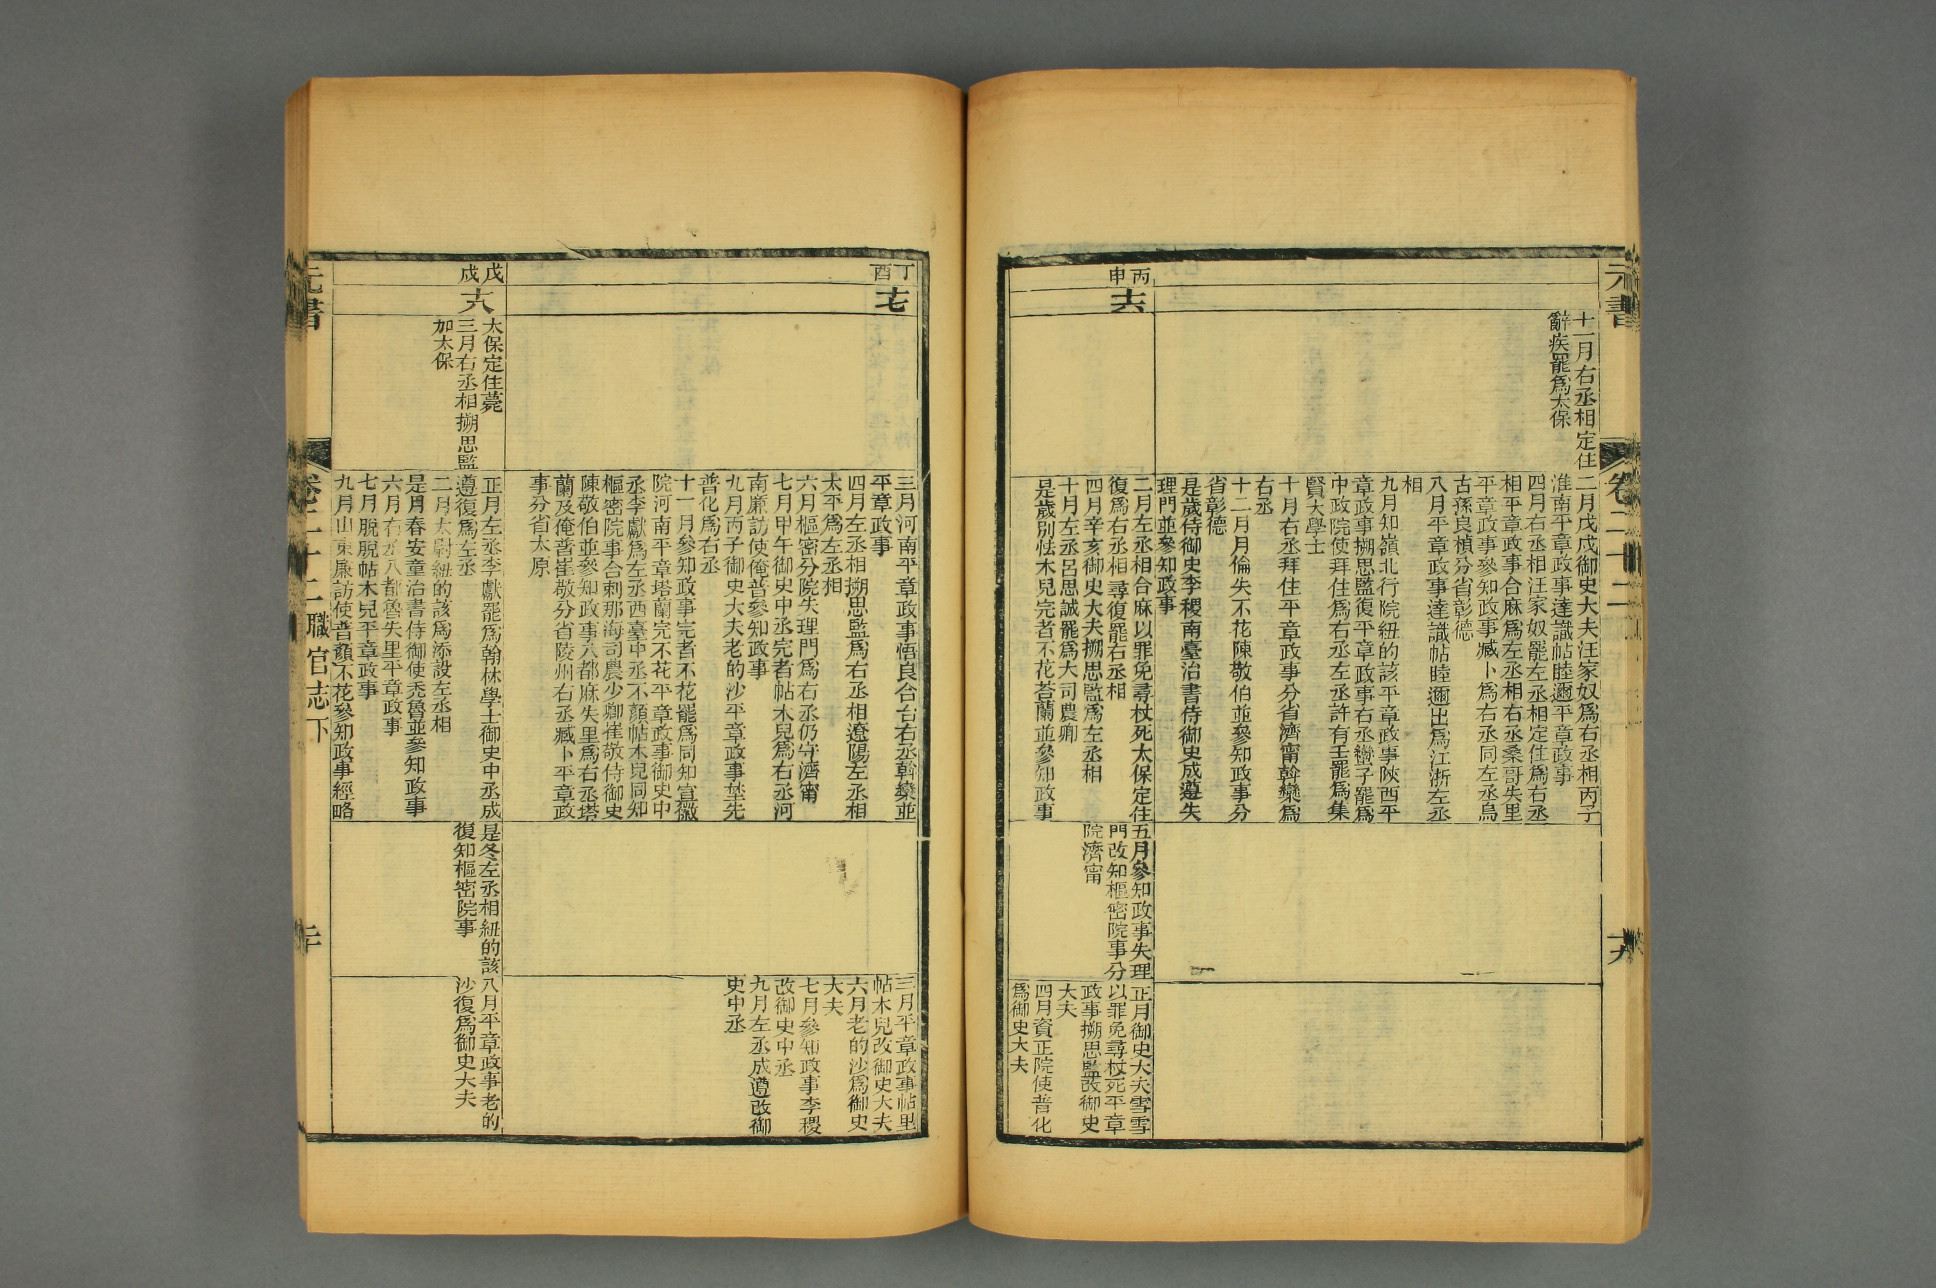 元書
卷二十二
十九
十一月右丞相定住
辭疾罷爲太保
二月戊戌御史大夫汪家奴爲右丞相丙子
淮南平章政事達識帖睦邇平章政事
四月右丞相汪家奴罷左丞相定住爲右丞
相平章政事合麻爲左丞相右丞桑哥失里
平章政事參知政事臧卜爲右丞同左丞烏
古孫良楨分省彰德
八月平章政事達識帖睦邇出爲江浙左丞
相
九月知嶺北行院紐的該平章政事陜西平
章政事搠思監復平章政事右丞蠻子罷爲
中政院使拜住爲右丞左丞許有壬罷爲集
賢大學士
十月右丞拜住平章政事分省濟甯斡欒爲
右丞
十二月月倫失不花陳敬伯並參知政事分
省彰德
是歲侍御史李稷南臺治書侍御史成遵失
理門並參知政事
丙申
十六
二月左丞相合麻以罪免尋杖死太保定住
復爲右丞相尋復罷右丞相
四月辛亥御史大夫搠思監爲左丞相
十月左丞呂思誠罷爲大司農卿
是歲別怯木兒完者不花荅蘭並參知政事
五月參知政事失理
門改知樞密院事分
院濟甯
正月御史大夫雪雪
以罪免尋杖死平章
政事搠思監改御史
大夫
四月資正院使普化
爲御史大夫
丁酉
十七
三月河南平章政事悟良合台右丞斡欒並
平章政事
四月左丞相搠思監爲右丞相遼陽左丞相
太平爲左丞相
六月樞密分院失理門爲右丞仍守濟甯
七月甲午御史中丞完者帖木兒爲右丞河
南廉訪使俺普參知政事
九月丙子御史大夫老的沙平章政事埜先
普化爲右丞
十一月參知政事完者不花罷爲同知宣徽
院河南平章塔蘭完不花平章政事御史中
丞李獻爲左丞西臺中丞不顏帖木兒同知
樞密院事合剌那海司農少卿崔敬侍御史
陳敬伯並參知政事八都麻失里爲右丞塔
蘭及俺普崔敬分省陵州右丞臧卜平章政
事分省太原
三月平章政事帖里
帖木兒改御史大夫
六月老的沙爲御史
大夫
七月參知政事李稷
改御史中丞
九月左丞成遵改御
史中丞
戊戌
十八
太保定住薨
三月右丞相搠思監
加太保
正月左丞李獻罷爲翰林學士御史中丞成
遵復爲左丞
二月太尉紐的該爲添設左丞相
是月春安童治書侍御使禿魯並參知政事
六月右丞八都魯失里平章政事
七月脫脫帖木兒平章政事
九月山東廉訪使普顏不花參知政事經略
是冬左丞相紐的該
復知樞密院事
八月平章政事老的
沙復爲御史大夫
元書
卷二十二職官志下
二十